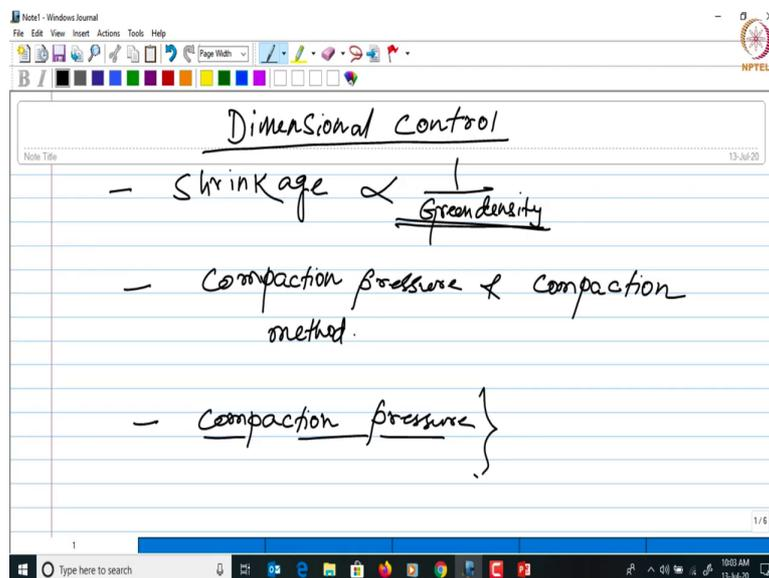 Note1 - Windows Journal
File Edit View Insert Actions Tools Help
Page Width
NPTEL
B I
Dimensional Control
Note Title
13-Jul-20
- Shrinkage ∝ 1
Green density
- Compaction pressure & compaction
method.
- Compaction pressure }
1/6
1
Type here to search
10:03 AM
13-Jul-20